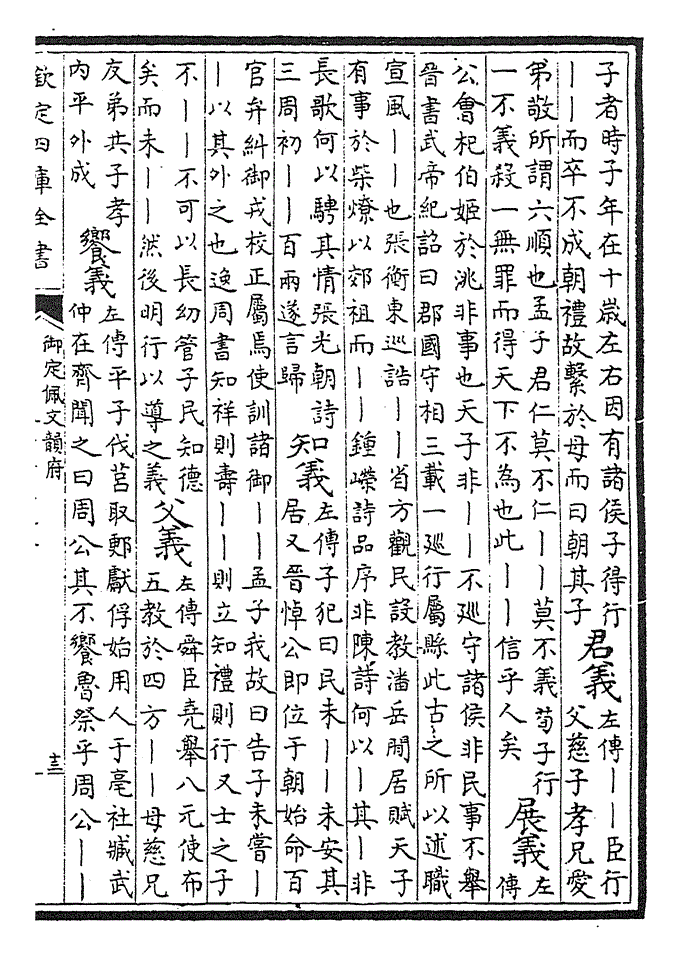 子者時子年在十歲左右因有諸侯子得行
||而卒不成朝禮故繫於母而曰朝其子
君義
左傳||臣行
父慈子孝兄愛
弟敬所謂六順也孟子君仁莫不仁||莫不義荀子行
一不義殺一無罪而得天下不為也此||信乎人矣
展義
左
傳
公會杞伯姬於洮非事也天子非||不廵守諸侯非民事不舉
晉書武帝紀詔曰郡國守相三載一廵行屬縣此古之所以述職
宣風||也張衡東巡誥||省方觀民設教潘岳閒居賦天子
有事於柴燎以郊祖而||鍾嶸詩品序非陳詩何以|其|非
長歌何以騁其情張光朝詩
三周初||百兩遂言歸
知義
左傳子犯曰民未||未安其
居又晉悼公即位于朝始命百
官弁糾御戎校正屬焉使訓諸御||孟子我故曰告子未嘗|
|以其外之也逸周書知祥則壽||則立知禮則行又士之子
不||不可以長幼管子民知德
矣而未||然後明行以導之義
父義
左傳舜臣堯舉八元使布
五教於四方||母慈兄
友弟共子孝
內平外成
饗義
左傳平子伐莒取郠獻俘始用人于亳社臧武
仲在齊聞之曰周公其不饗魯祭乎周公||
欽定四庫全書
御定佩文韻府
十三